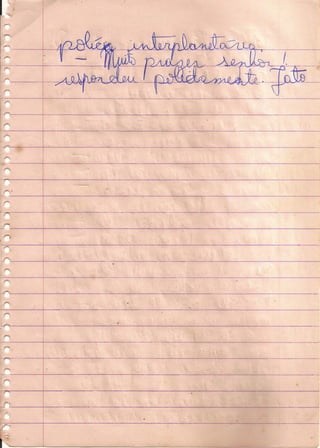 polícia interplanetária.
— Muito prazer senhor!
respondeu polidamente. Jato